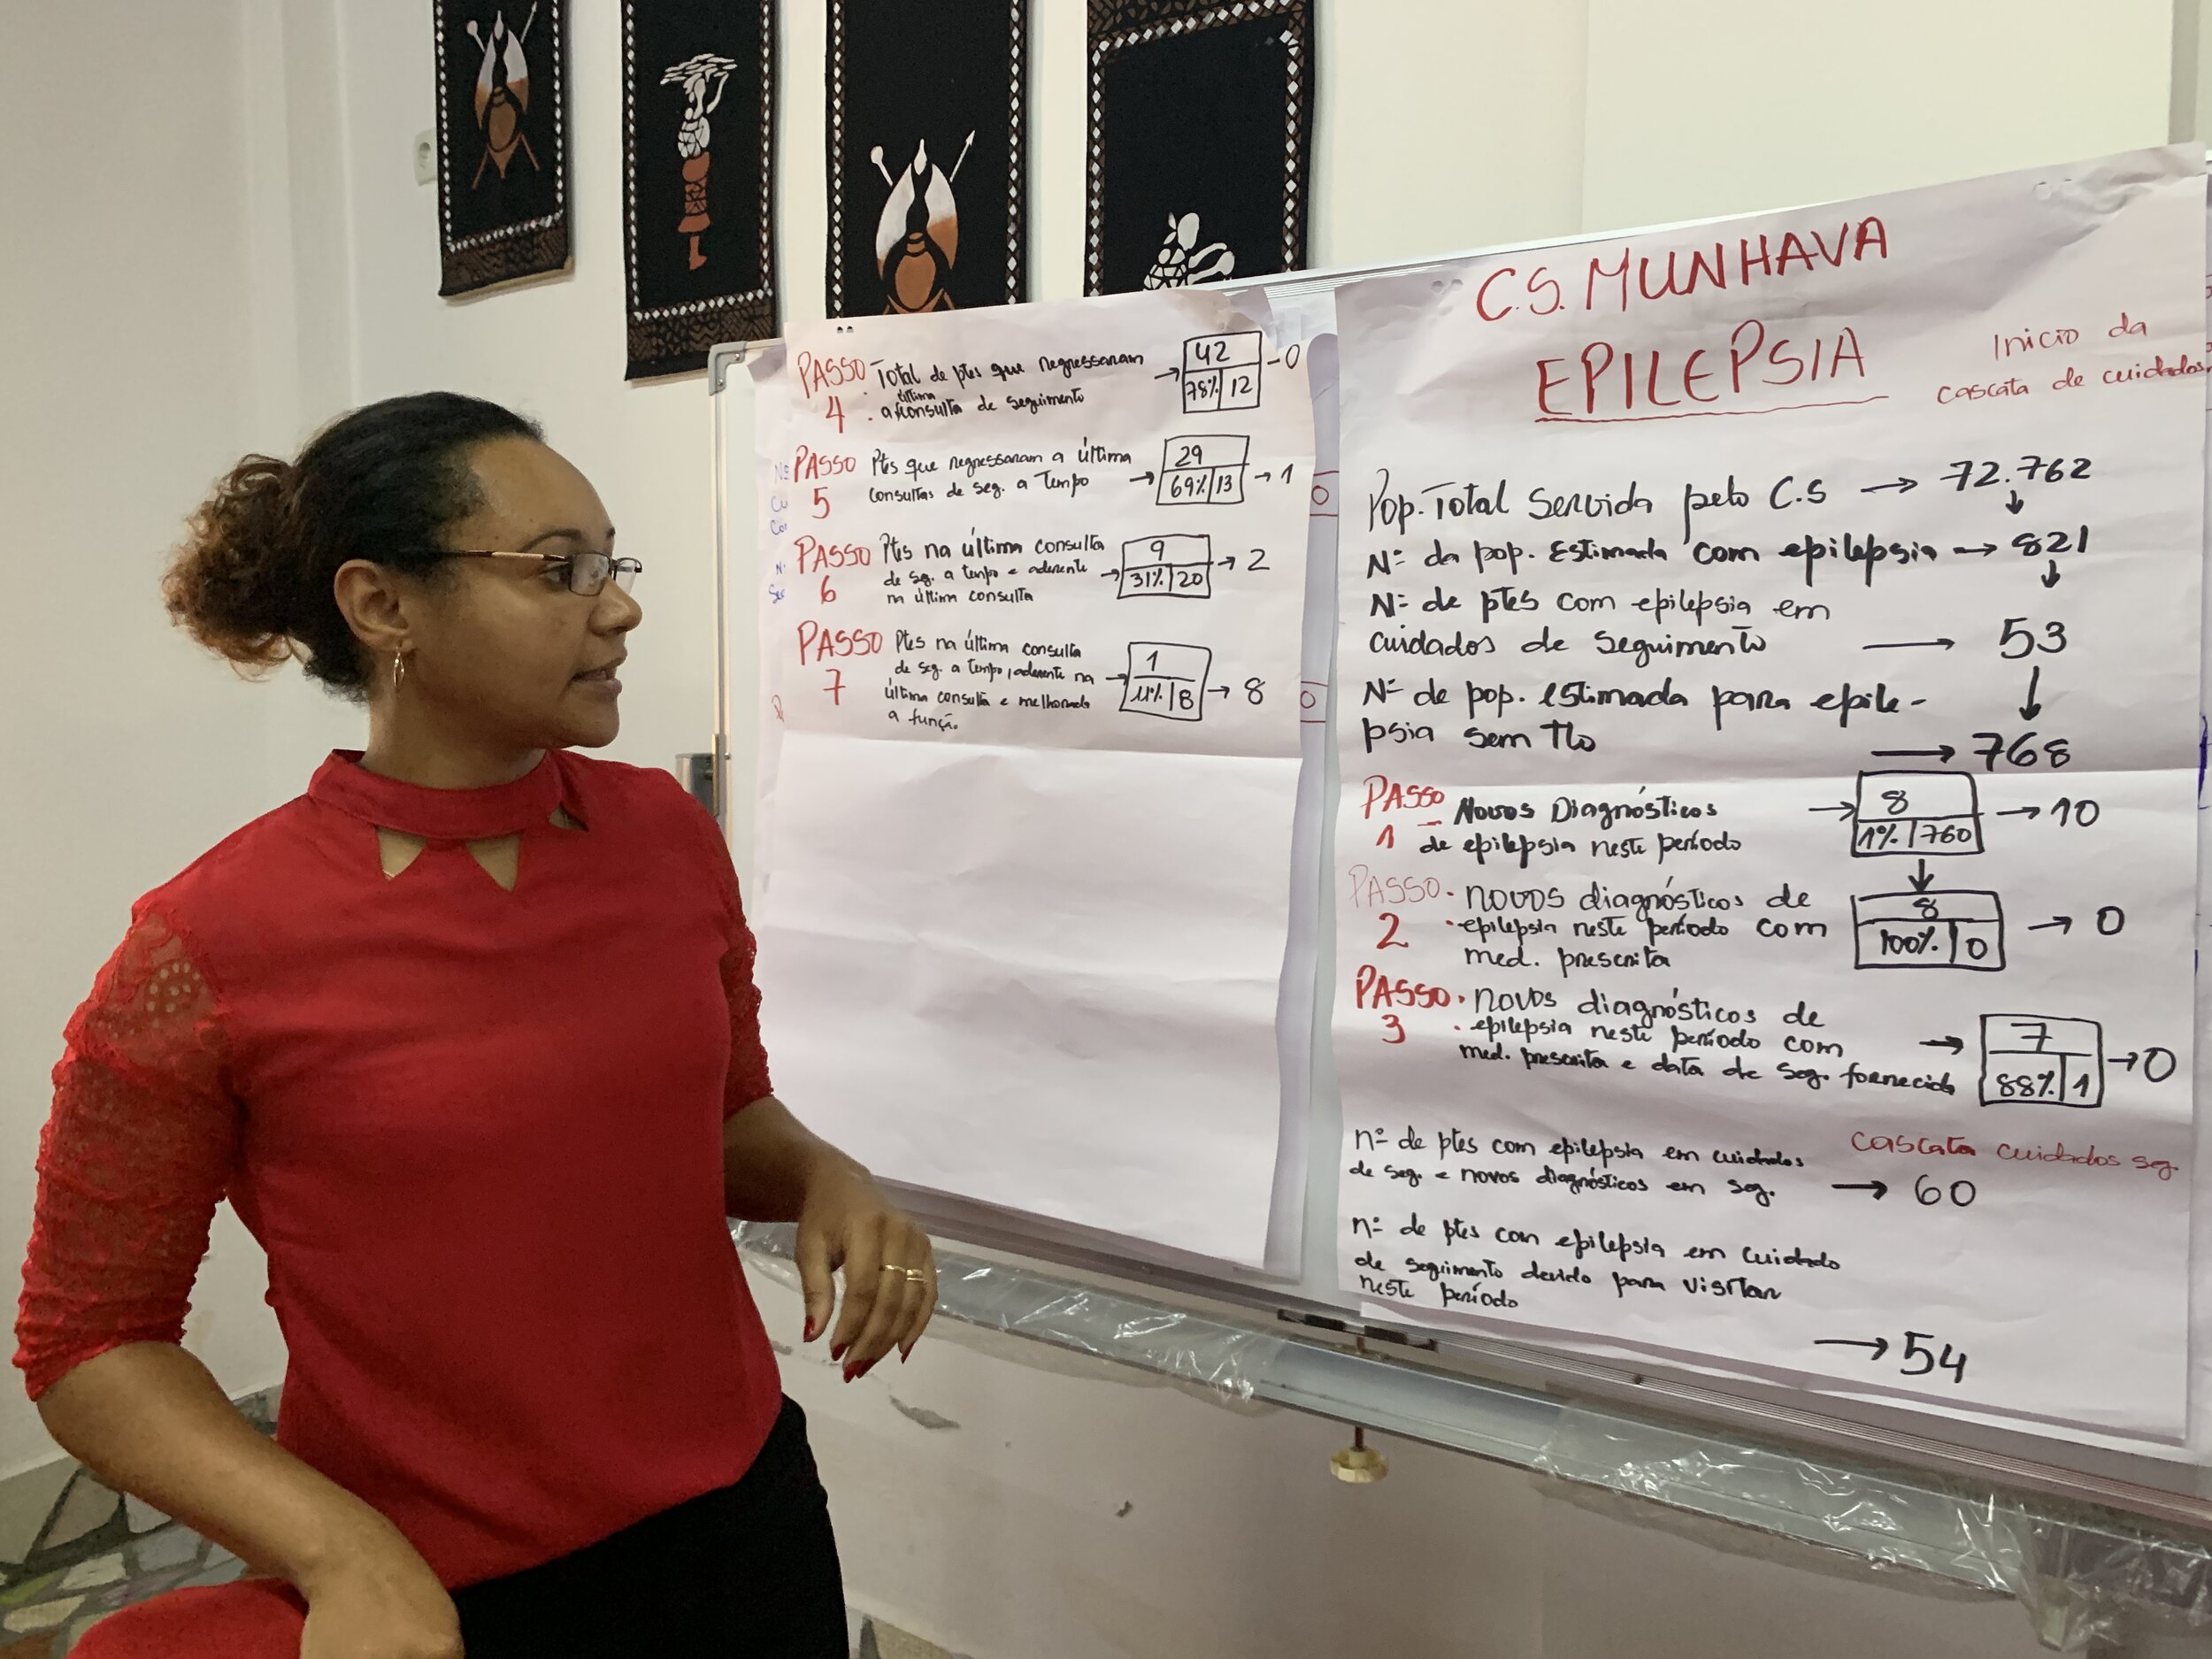 C.S. MUNHAVA
EPILEPSIA
Inicio da
cascata de cuidados
Pop. Total Servida pelo C.S → 72.762
Nº da pop. Estimada com epilepsia → 821
Nº de ptes com epilepsia em
cuidados de seguimento → 53
Nº de pop. estimada para epile-
psia sem Tto → 768
PASSO 1 - Novos Diagnósticos
de epilepsia neste período
→ 8
1% | 760
→ 10
PASSO 2 · novos diagnósticos de
· epilepsia neste período com
med. prescrita
8
100% | 0
→ 0
PASSO 3 · novos diagnósticos de
· epilepsia neste período com
med. prescrita e data de seg. fornecida
→ 7
88% | 1
→ 0
cascata cuidados seg.
nº de ptes com epilepsia em cuidados
de seg. e novos diagnósticos em seg. → 60
nº de ptes com epilepsia em cuidado
de seguimento devido para visitar
neste período
→ 54
PASSO 4 · Total de ptes que regressaram
última
· a consulta de seguimento
→ 42
78% | 12
- 0
PASSO 5 Ptes que regressaram a última
consultas de seg. a tempo
→ 29
69% | 13
→ 1
PASSO 6 Ptes na última consulta
de seg. a tempo e aderente
na última consulta
→ 9
31% | 20
→ 2
PASSO 7 Ptes na última consulta
de seg. a tempo, aderente na
última consulta e melhorado
a função
→ 1
11% | 8
→ 8